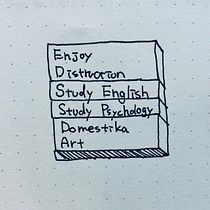 Enjoy
Distruction
Study English
Study Psychology
Domestika
Art